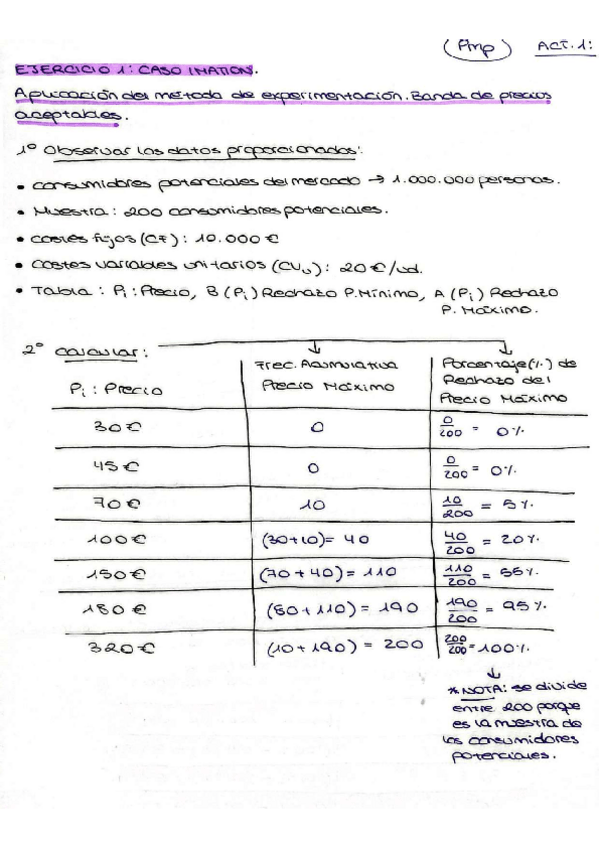 (Pmp) ACT. 1:
EJERCICIO 1: CASO IMATION.
Aplicación del método de experimentación. Banda de precios
aceptables.
1º Observar los datos proporcionados:
• consumidores potenciales del mercado → 1.000.000 personas.
• Muestra: 200 consumidores potenciales.
• costes fijos (CF): 10.000 €
• costes variables unitarios (CVu): 20 €/ud.
• Tabla: Pi: Precio, B (Pi) Rechazo P. Mínimo, A (Pi) Rechazo
P. Máximo.
2º calcular:
Pi: Precio | Frec. Acumulativa Precio Máximo | Porcentaje (%) de Rechazo del Precio Máximo
30 € | 0 | 0/200 = 0%
45 € | 0 | 0/200 = 0%
70 € | 10 | 10/200 = 5%
100 € | (30+10) = 40 | 40/200 = 20%
150 € | (70+40) = 110 | 110/200 = 55%
180 € | (80+110) = 190 | 190/200 = 95%
320 € | (10+190) = 200 | 200/200 = 100%
* NOTA: se divide
entre 200 porque
es la muestra de
los consumidores
potenciales.